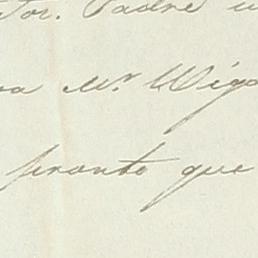 Sor. Padre
Mr. Wig
pronto que